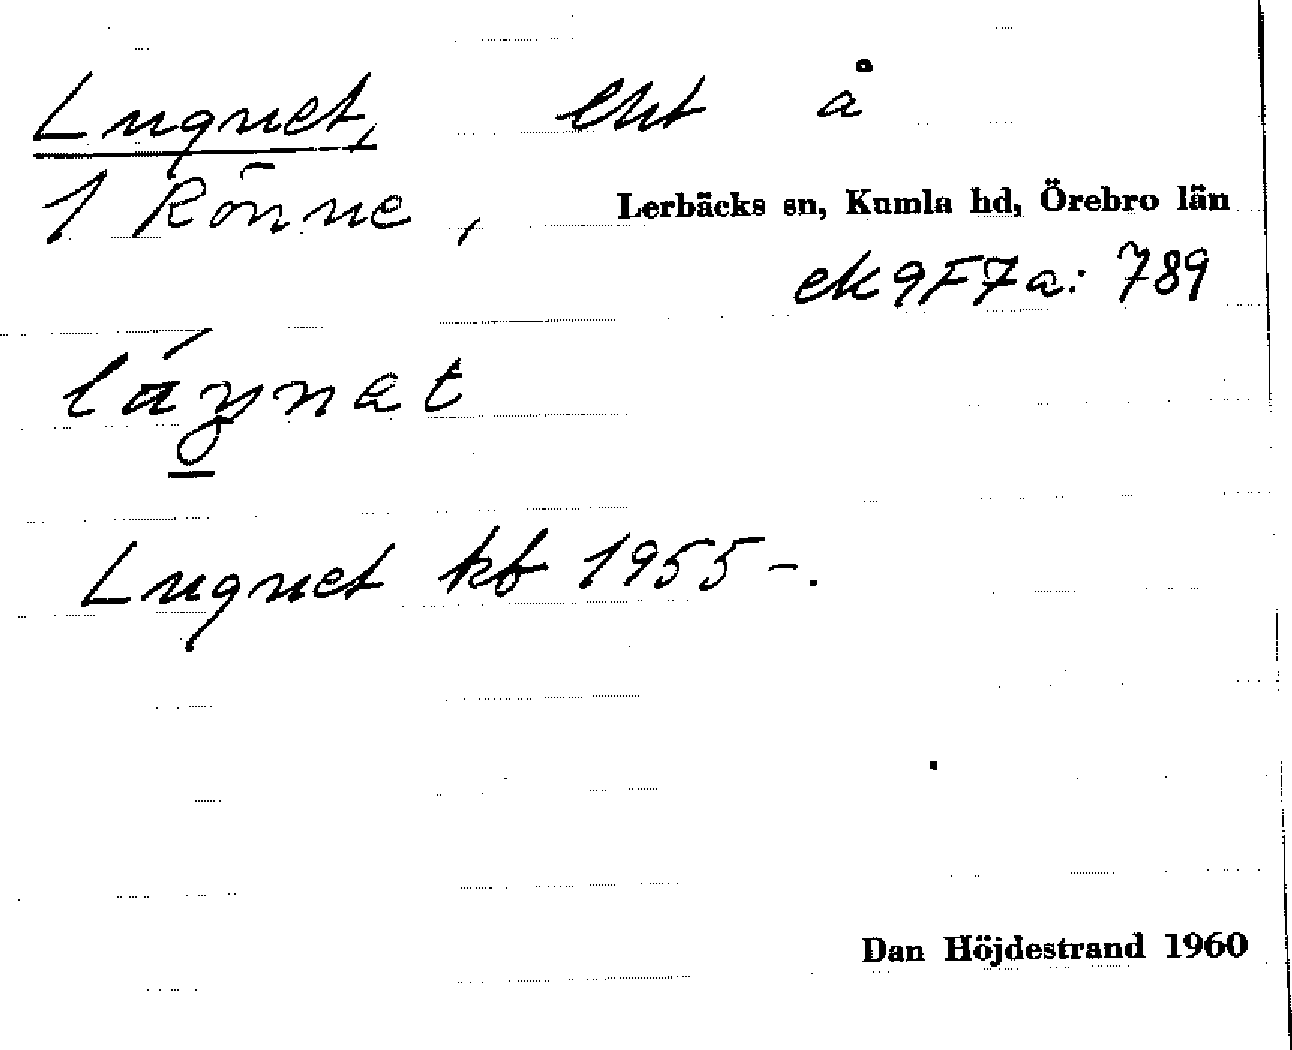 Lugnet, lht å
1 Rönne, Lerbäcks sn, Kumla hd, Örebro län
ek 9F7a: 789
láŋnat
Lugnet kb 1955 -.
Dan Höjdestrand 1960